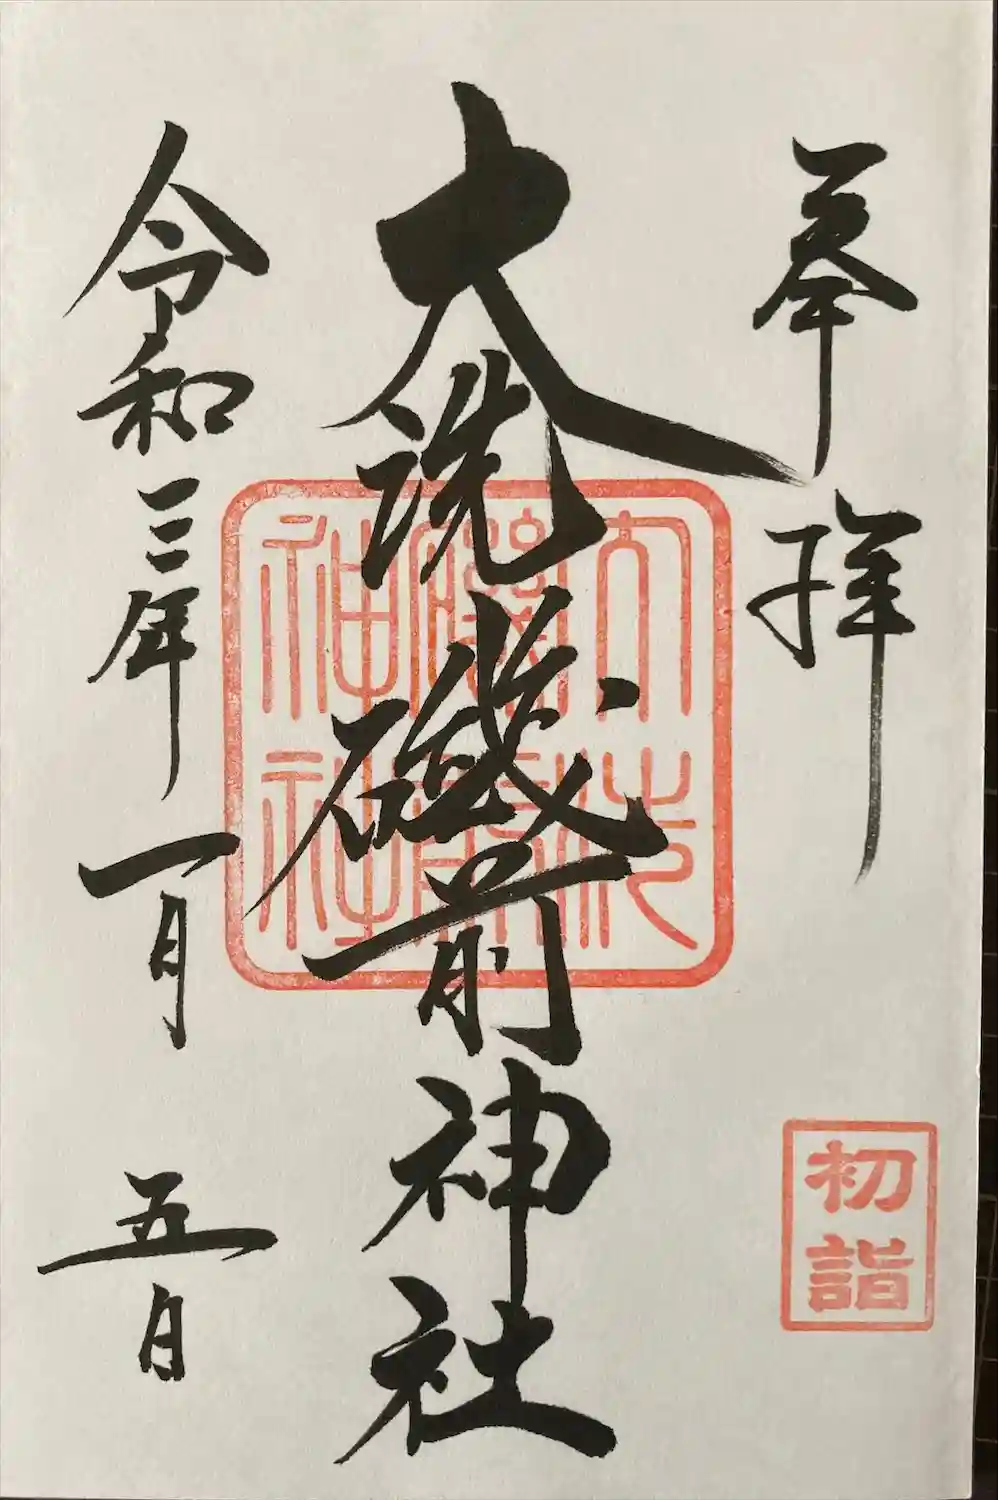 奉拝
大洗磯前神社
大洗
磯前
神社
初詣
令和三年一月五日